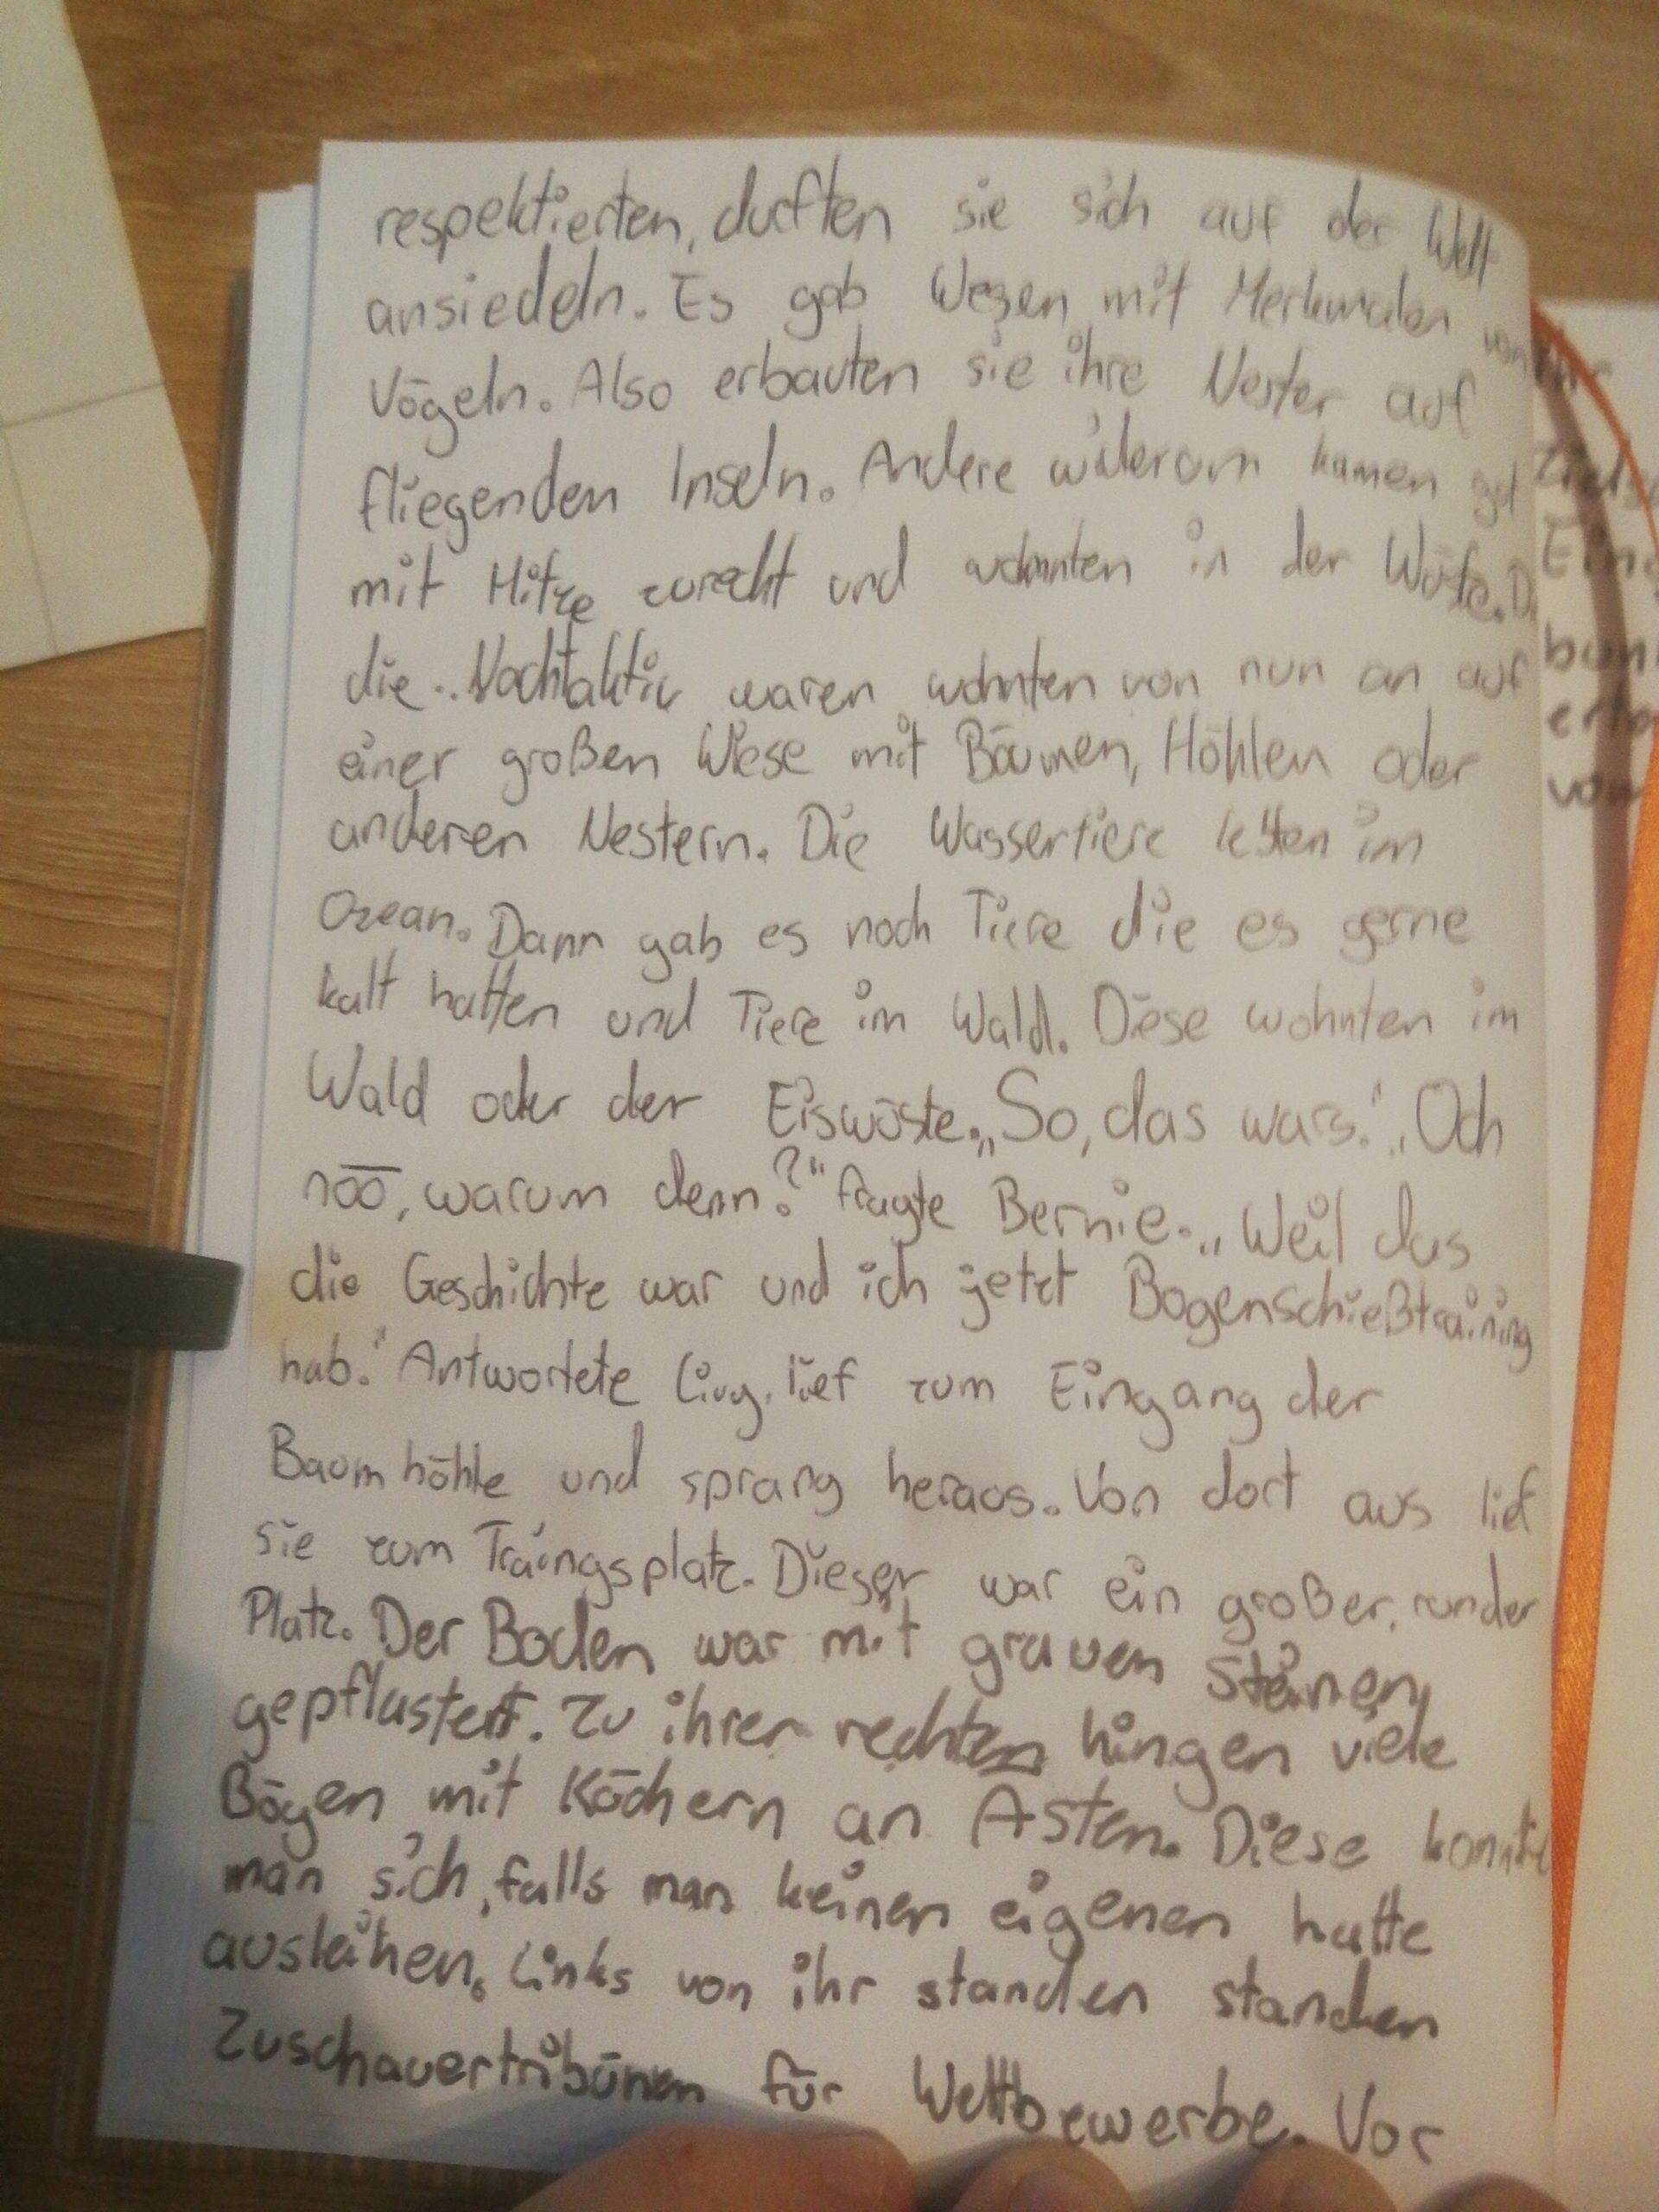 respektierten, durften sie sich auf der Welt
ansiedeln. Es gab Wesen mit Merkmalen von
Vögeln. Also erbauten sie ihre Nester auf
fliegenden Inseln. Andere widerum kamen gut
mit Hitze zurecht und wohnten in der Wüste. Di
die Nachtaktiv waren wohnten von nun an auf
einer großen Wiese mit Bäumen, Höhlen oder
anderen Nestern. Die Wassertiere lebten im
Ozean. Dann gab es noch Tiere die es gerne
kalt hatten und Tiere im Wald. Diese wohnten im
Wald oder der Eiswüste. „So, das wars." „Och
nöö, warum denn?" fragte Bernie. „Weil das
die Geschichte war und ich jetzt Bogenschießtraining
hab." Antwortete Livy, lief zum Eingang der
Baumhöhle und sprang heraus. Von dort aus lief
sie zum Traingsplatz. Dieser war ein großer, runder
Platz. Der Boden war mit grauen Steinen
gepflastert. Zu ihrer rechten hingen viele
Bögen mit Köchern an Ästen. Diese konnte
man sich, falls man keinen eigenen hatte
ausleihen. Links von ihr standen standen
Zuschauertribünen für Wettbewerbe. Vor